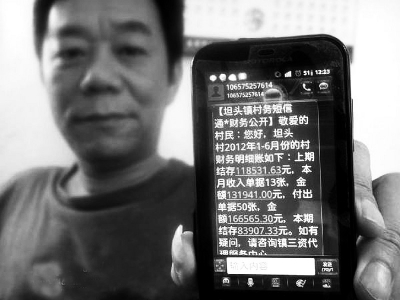 51 12:23
106575257614
106575257614
【坦头镇村务短信
通*财务公开】敬爱的
村民：您好，坦头
村2012年1-6月份的村
财务明细账如下：上期
结存118531.63元，本
月收入单据13张，金
额131941.00元，付出
单据50张，金
额166565.30元，本期
结存83907.33元。如有
疑问，请咨询镇三资代
理服务中心
输入内容
发送